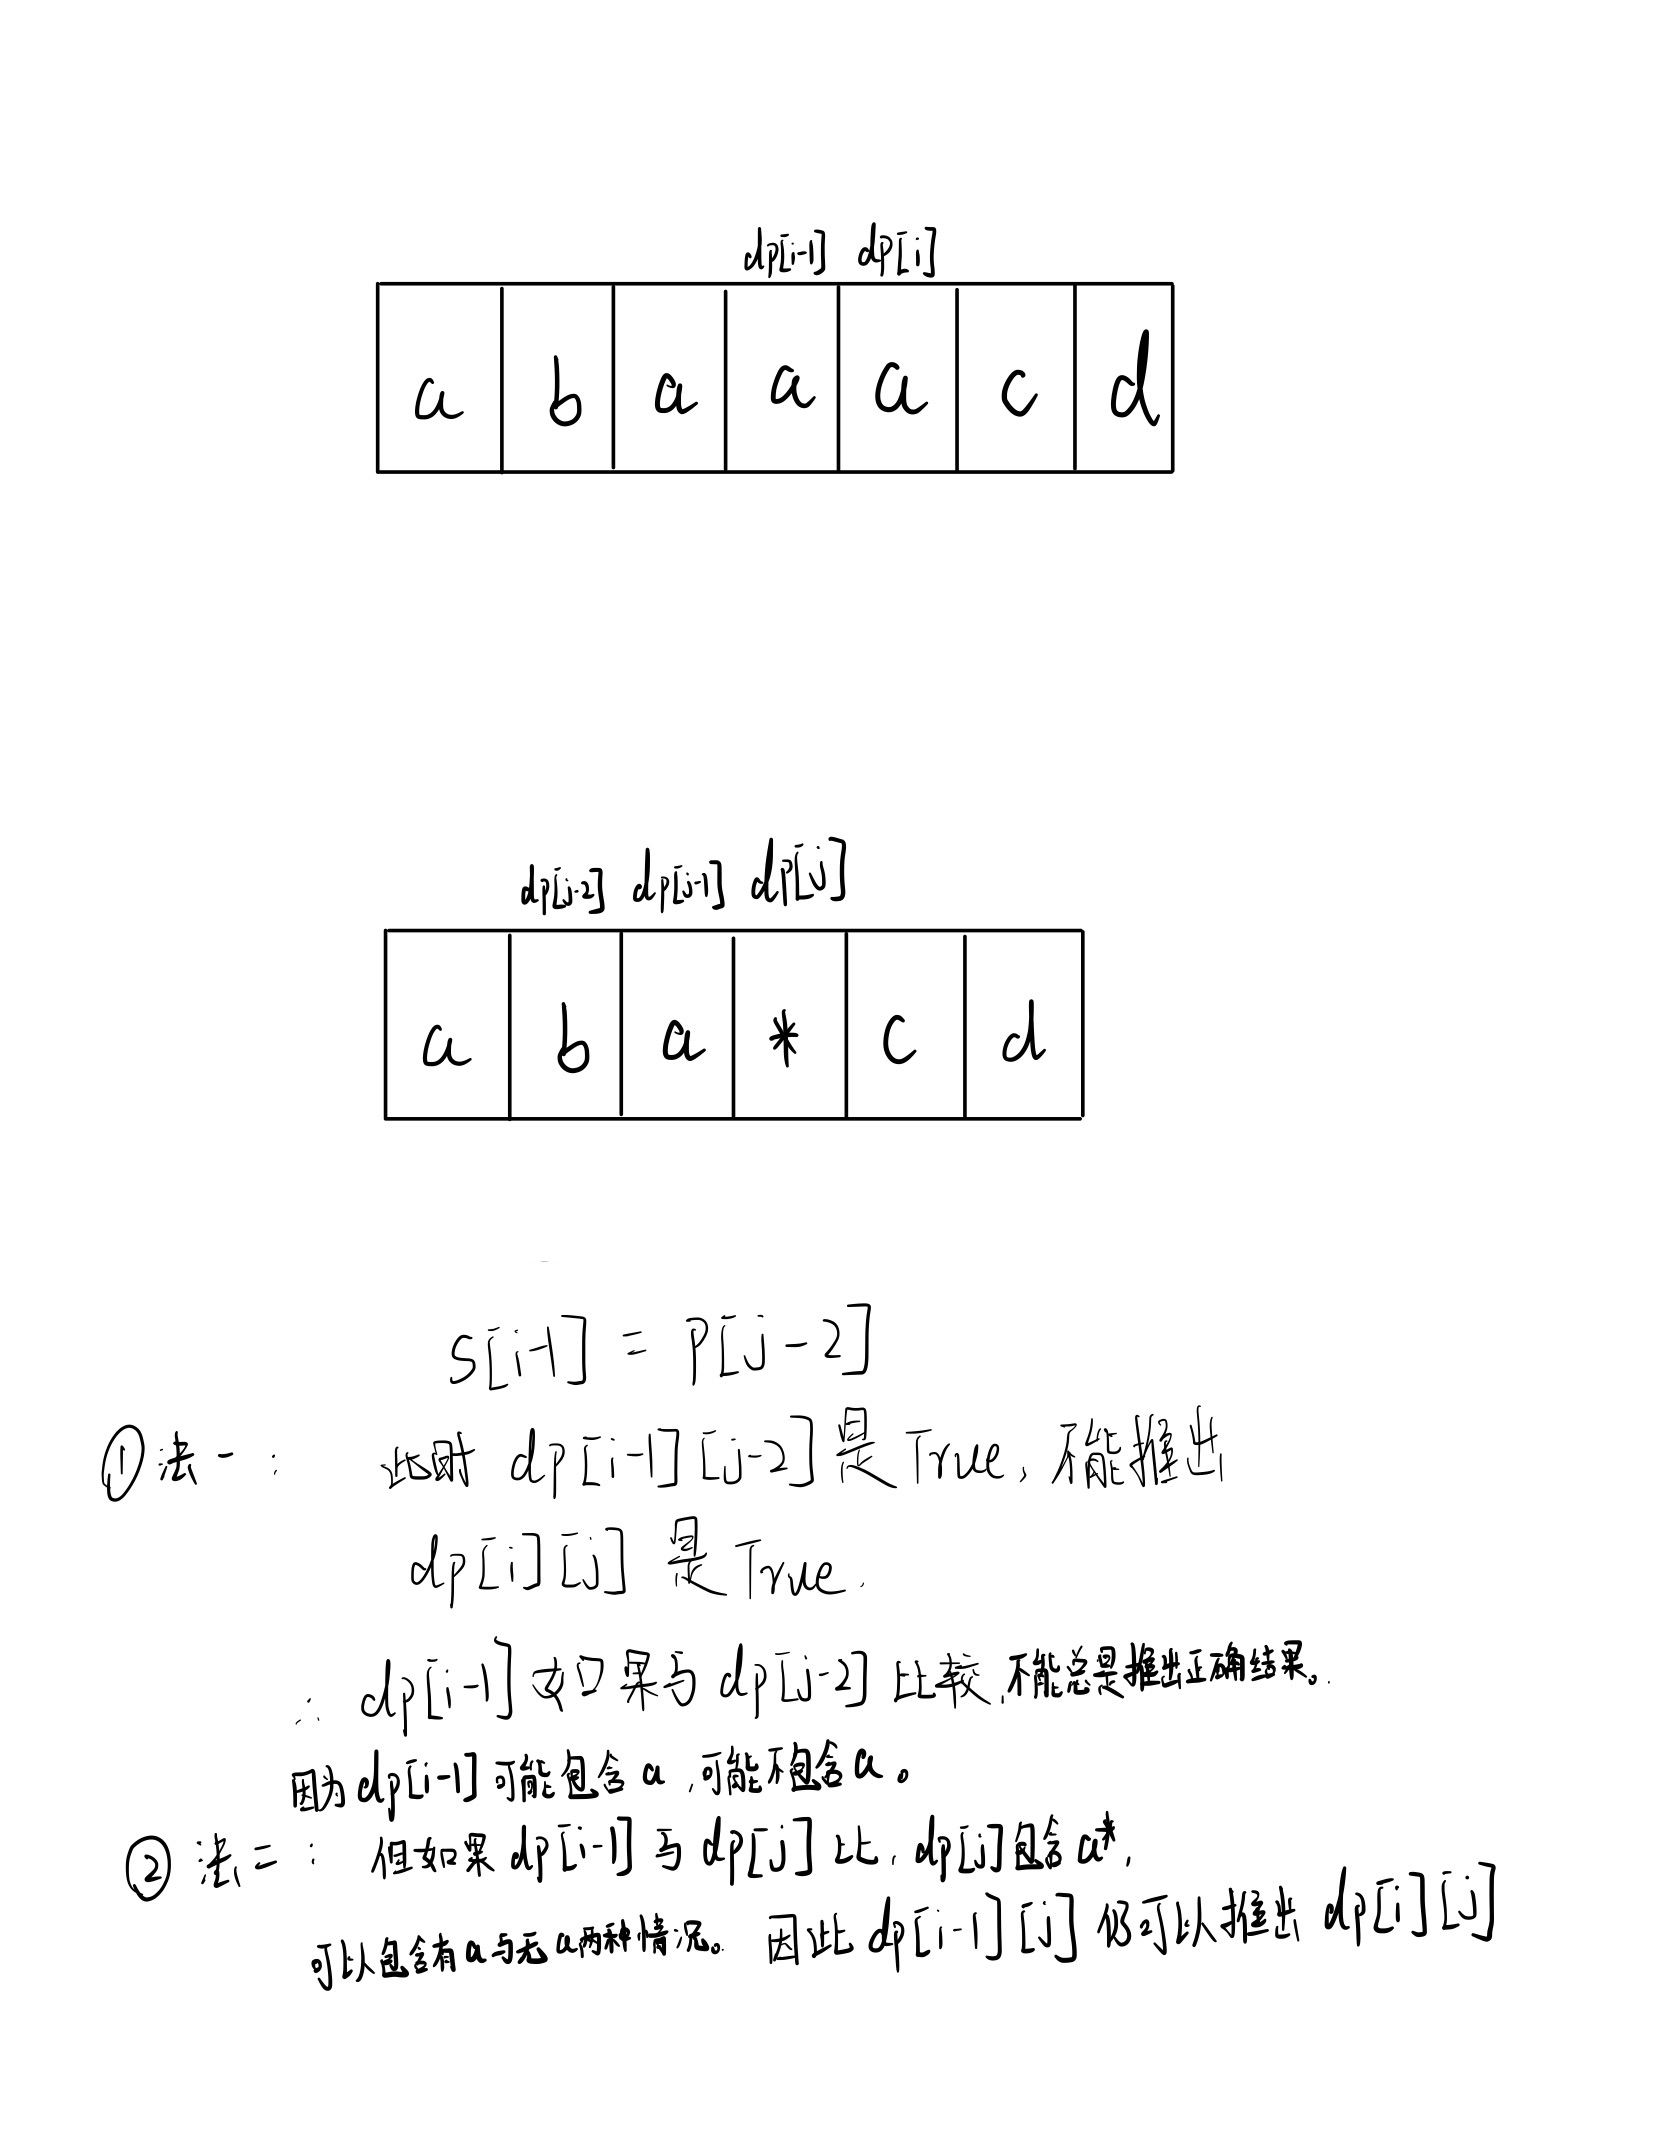 dp[i-1] dp[i]
a b a a a c d
dp[j-2] dp[j-1] dp[j]
a b a * c d
s[i-1] = p[j-2]
① 法一: 此时 dp[i-1][j-2] 是 True, 不能推出
dp[i][j] 是 True.
∴ dp[i-1] 如果与 dp[j-2] 比较, 不能总是推出正确结果。
因为 dp[i-1] 可能包含 a, 可能不包含 a。
② 法二: 但如果 dp[i-1] 与 dp[j] 比, dp[j] 包含 a*,
可以包含有 a 与无 a 两种情况。因此 dp[i-1][j] 仍可以推出 dp[i][j]